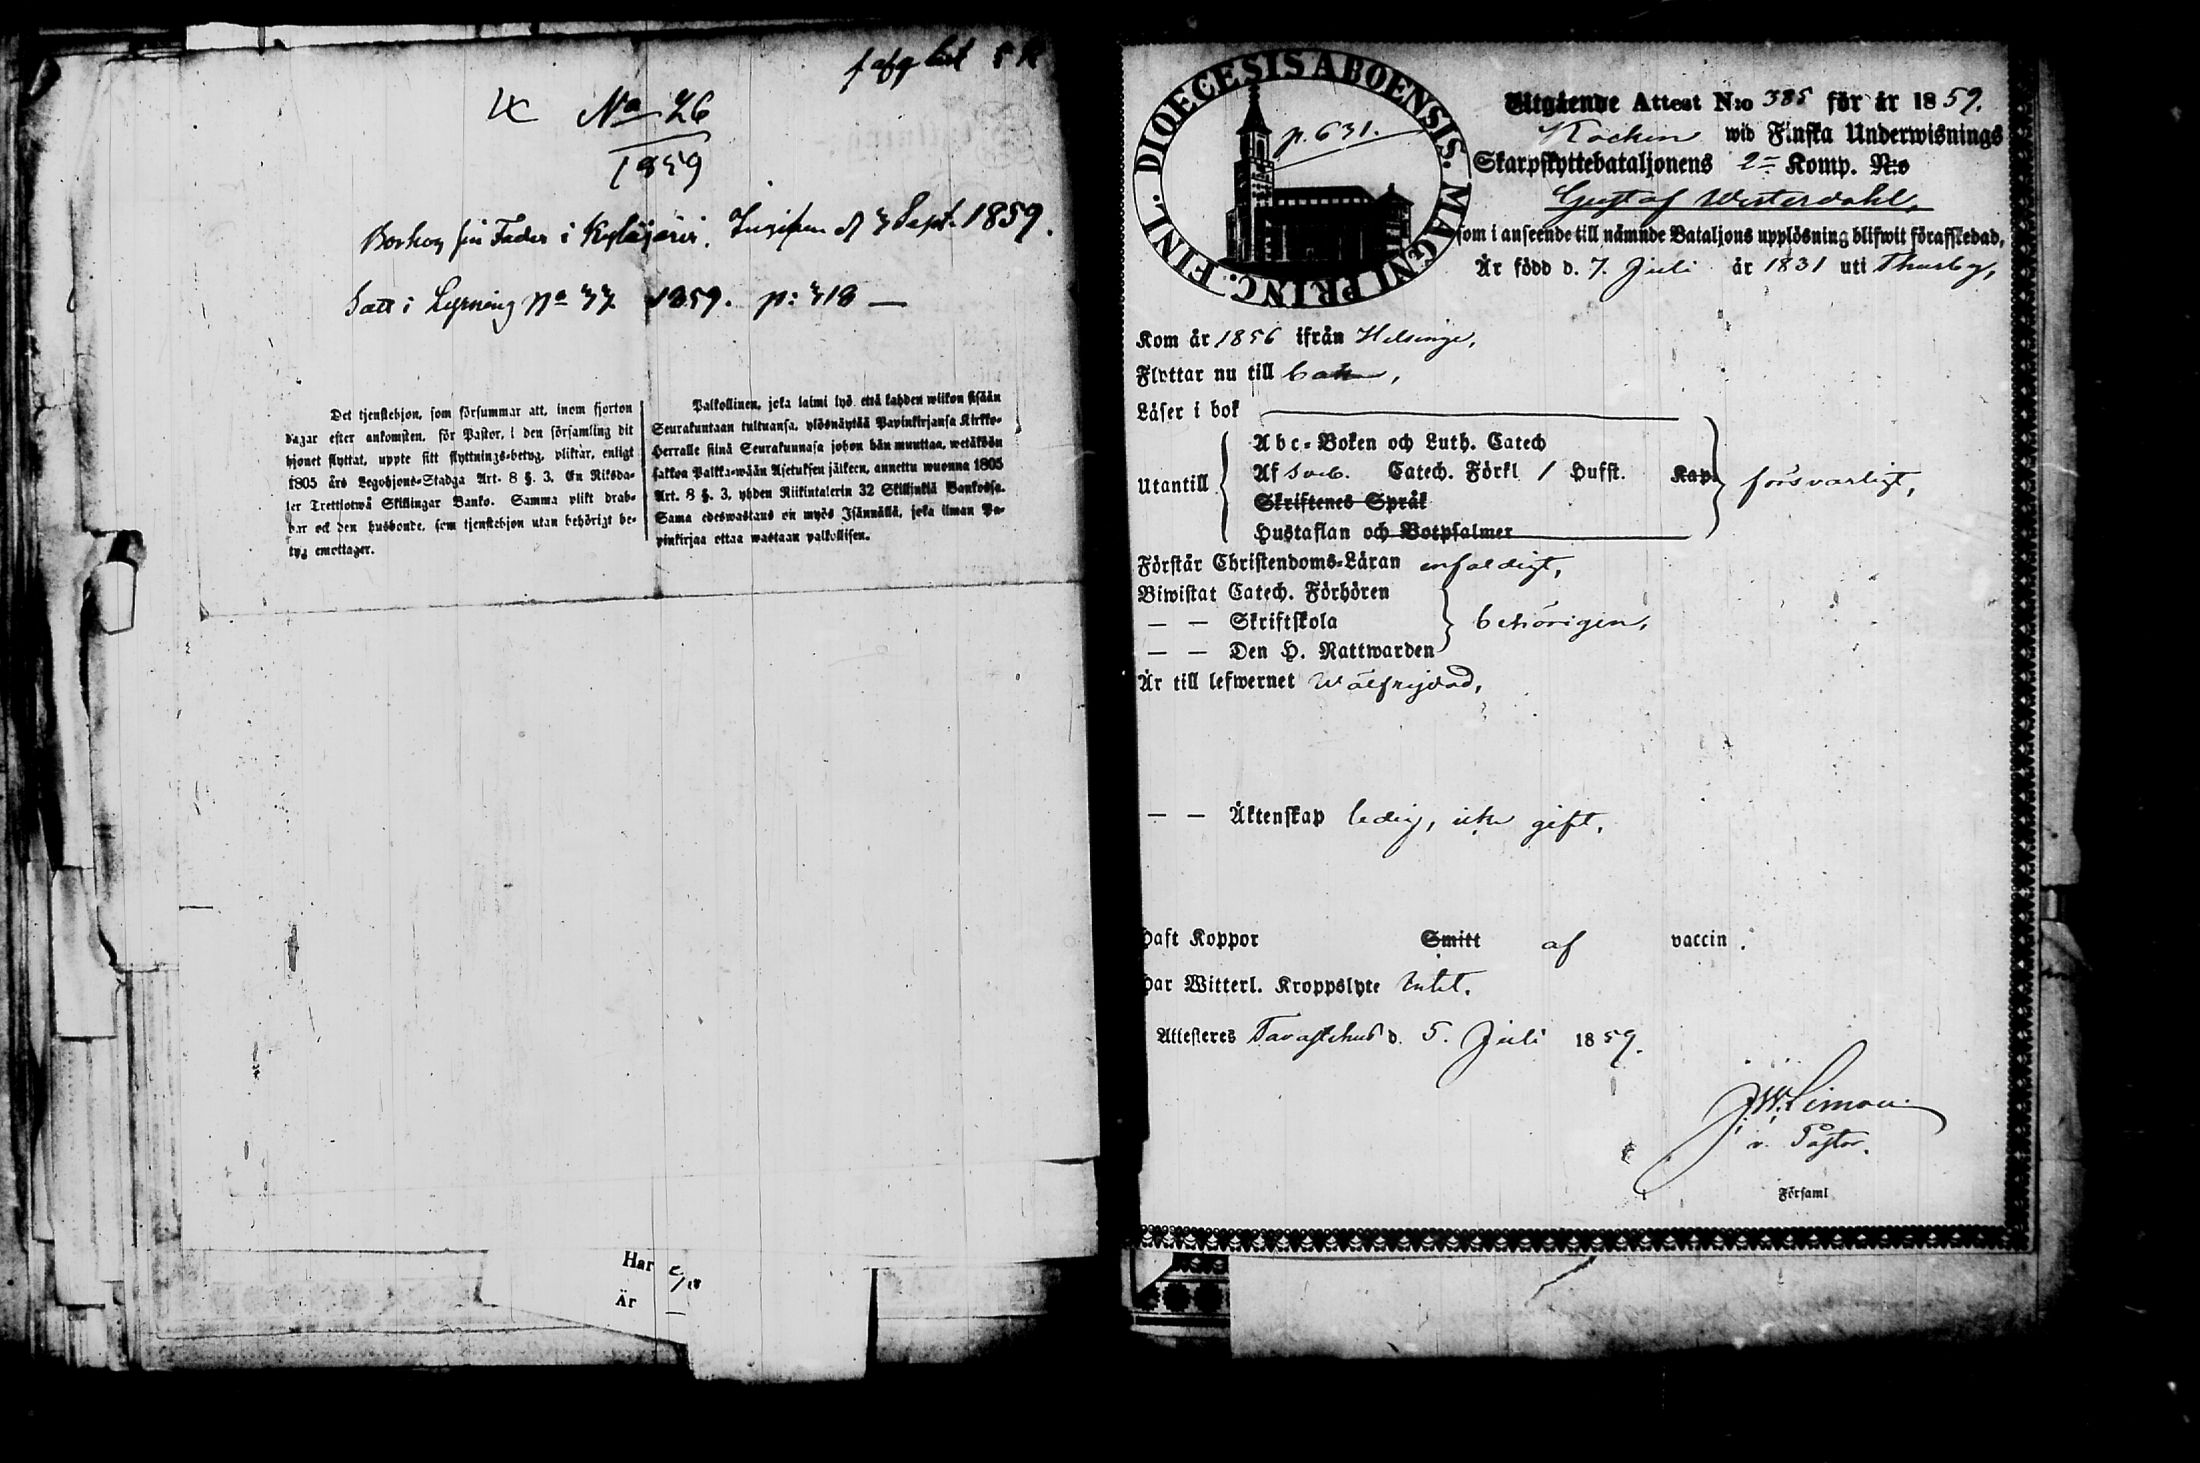 N:o 26
1859
Bor hos sin Fader i Kyläjärvi. Ingifven d 3 Sept. 1859.
Satt i Lysning N:o 37 1859. p: 318 —
Det tjenstehjon, som försummar att, inom fjorton
dagar efter ankomsten, för Pastor, i den församling dit
hjonet flyttat, uppte sitt flyttnings-betyg, pliktar, enligt
1805 års Legohjons-Stadga Art. 8 §. 3. En Riksda-
ler Trettiotwå Skillingar Banko. Samma plikt drab-
bar ock den husbonde, som tjenstehjon utan behörigt be-
tyg emottager.
Palkollinen, joka laimi lyö että kahden wiikon sisään
Seurakuntaan tultuansa, ylösnäytää Papinkirjansa Kirkko-
Herralle siinä Seurakunnasa johon hän muuttaa, wetäköön
sakkoa Palkka-wään Asetuksen jälkeen, annettu wuonna 1805
Art. 8 §. 3, yhden Riikintalerin 32 Skillinkiä Bankossa.
Sama edeswastaus on myös Isännällä, joka ilman Pa-
pinkirjaa ottaa wastaan palkollisen.
Har
Är —
DIOECESIS ABOENSIS. MAGNI PRINC. FINL.
p. 631.
Utgående Attest N:o 385 för år 1859.
Kocken wid Finska Underwisnings
Skarpskyttebataljonens 2:a Komp. N:o
Gustaf Westerdahl,
som i anseende till nämnde Bataljons upplösning blifwit förafskedad,
Är född d. 7. Juli år 1831 uti Thusby,
Kom år 1856 ifrån Helsinge,
Flyttar nu till
Läser i bok
Abc-Boken och Luth. Catech
Utantill Af Sveb. Catech. Förkl / Hufst. Kap. försvarligt,
Skriftenes Språk
Hustaflan och Botpsalmer
Förstår Christendoms-Läran enfaldigt,
Biwistat Catech. Förhören
— — Skriftskola behörigen,
— — Den H. Nattwarden
Är till lefwernet Wälfrejdad,
— — Äktenskap ledig, icke gift.
Haft Koppor Smitt af vaccin.
Har Witterl. Kroppslyte Intet.
Attesteres Tavastehus d. 5. Juli 1859.
v. Pastor.
Församl